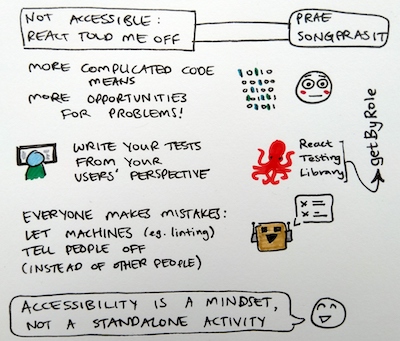 NOT ACCESSIBLE:
REACT TOLD ME OFF
PRAE
SONGPRASIT
MORE COMPLICATED CODE
MEANS
MORE OPPORTUNITIES
FOR PROBLEMS!
WRITE YOUR TESTS
FROM YOUR
USERS' PERSPECTIVE
React
Testing
Library
getByRole
EVERYONE MAKES MISTAKES:
LET MACHINES (eg. linting)
TELL PEOPLE OFF
(INSTEAD OF OTHER PEOPLE)
ACCESSIBILITY IS A MINDSET,
NOT A STANDALONE ACTIVITY